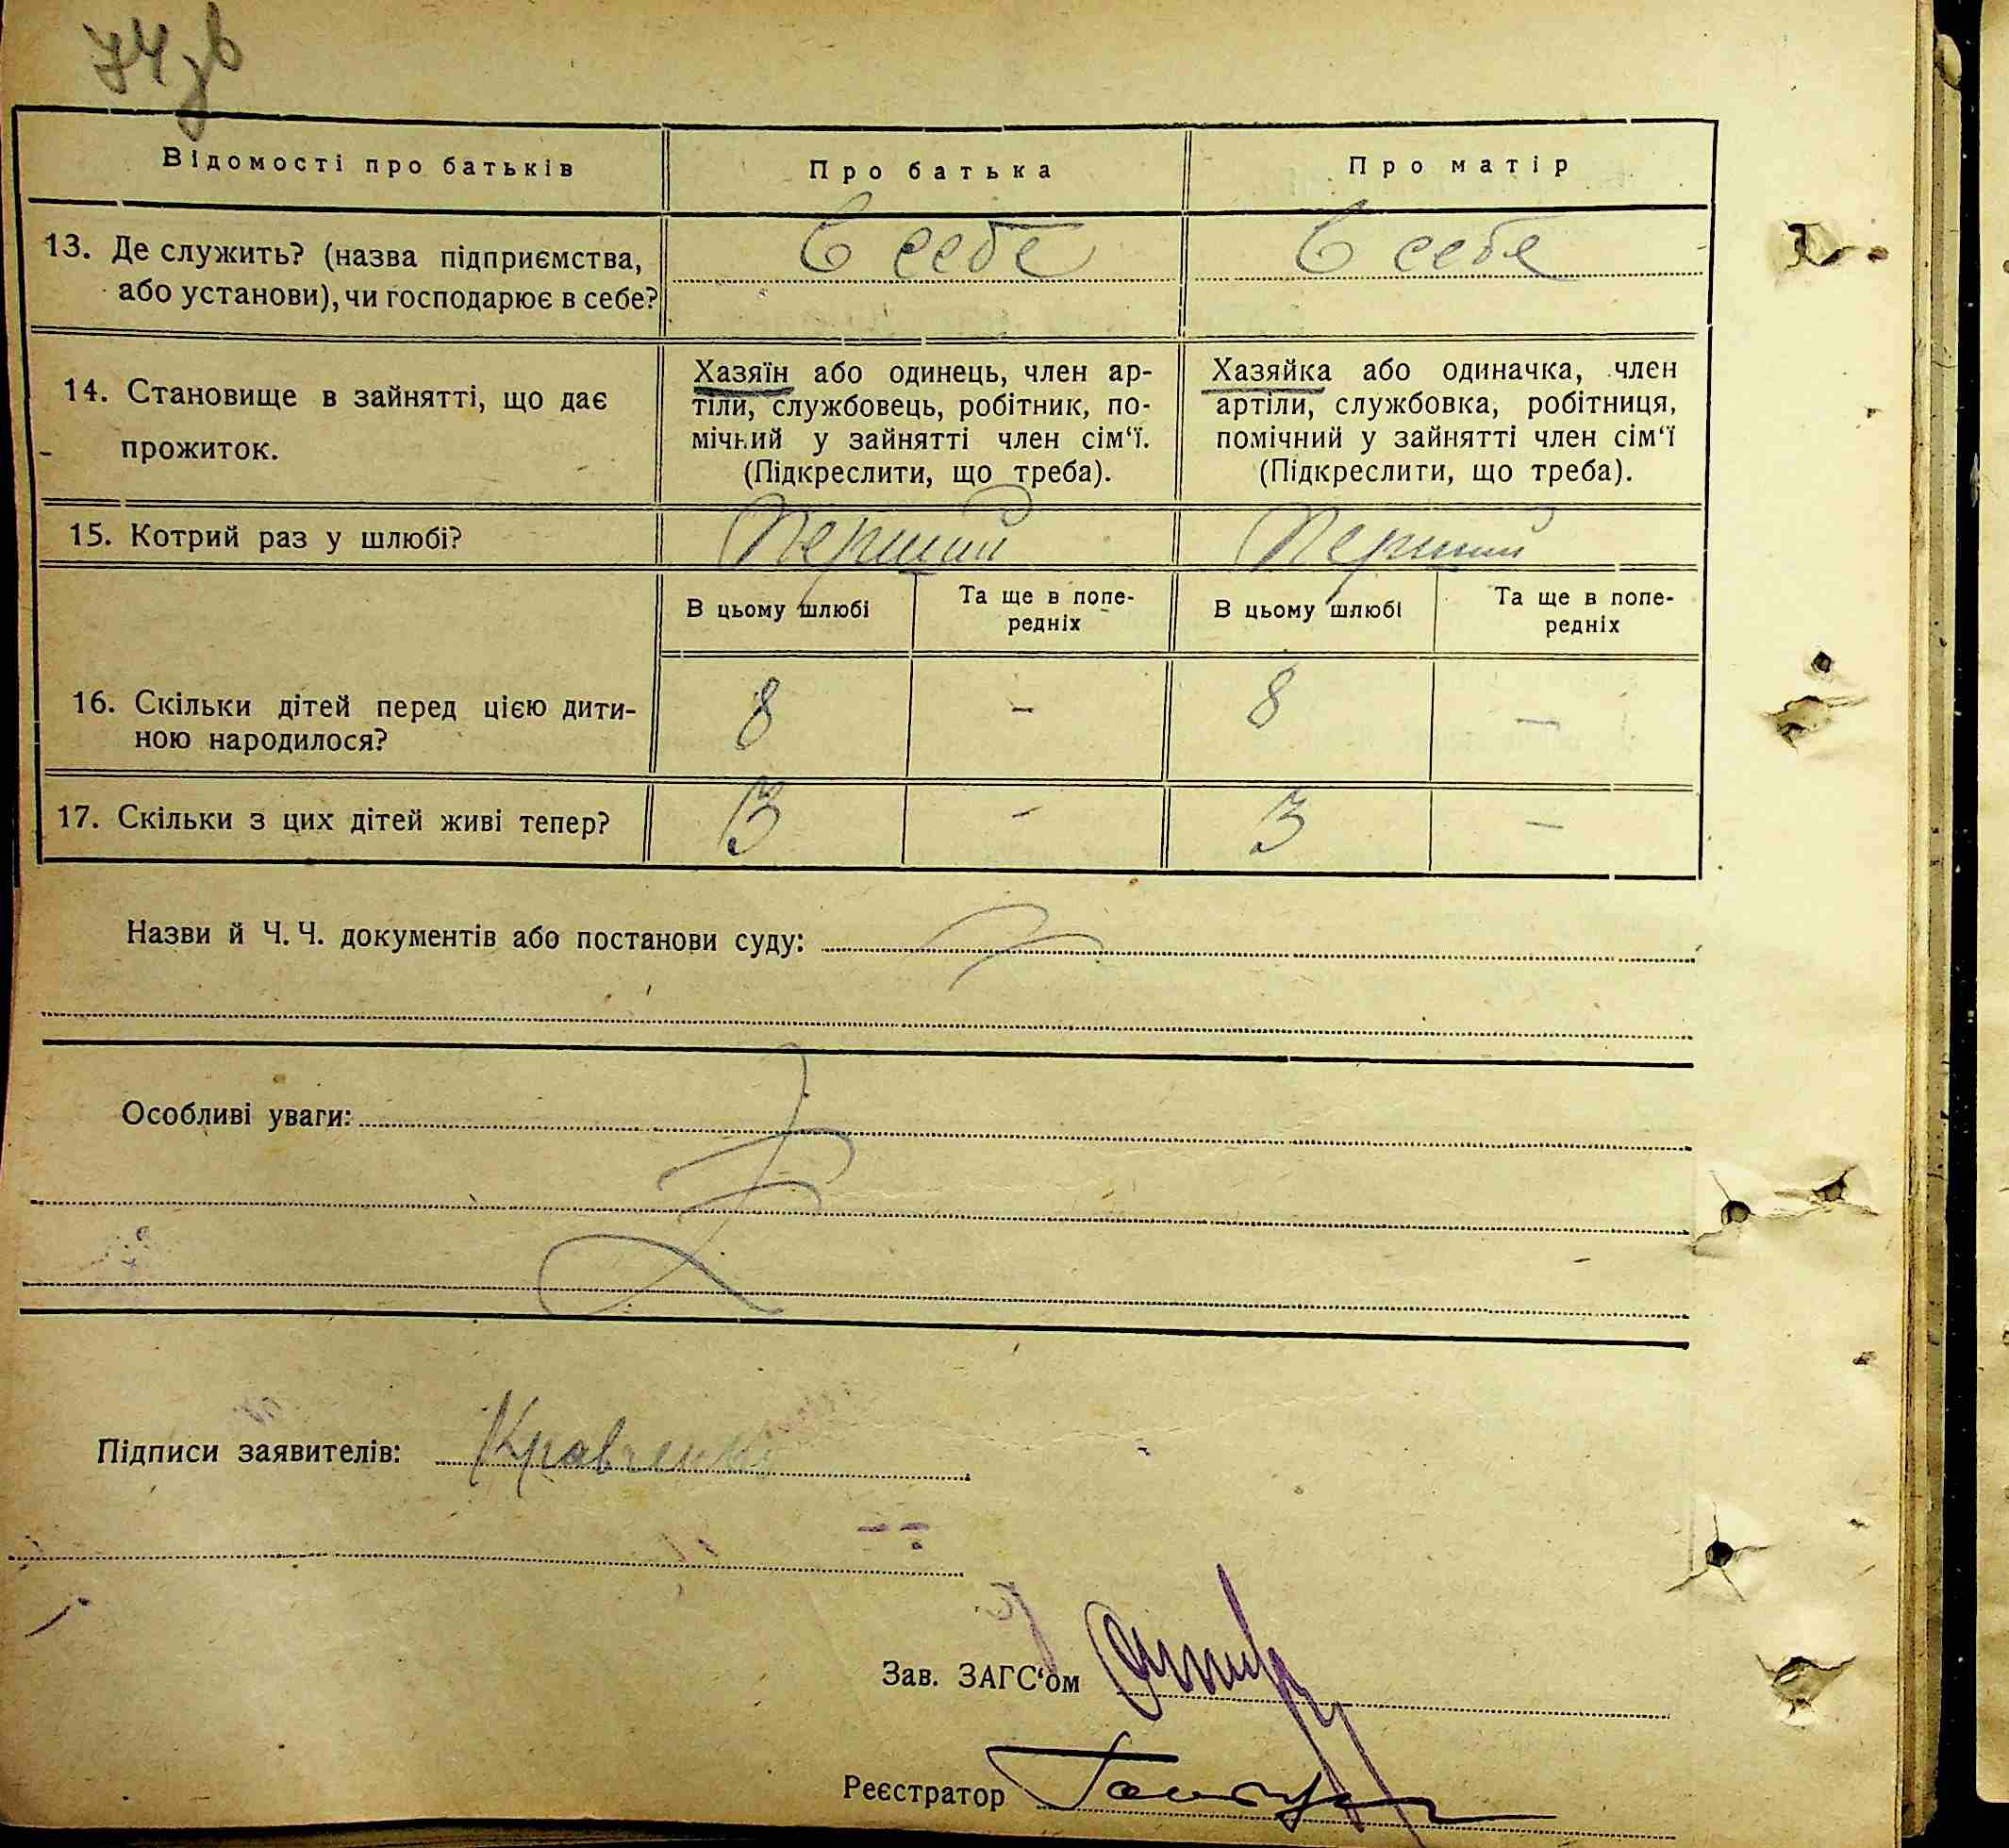 74зв
Відомості про батьків
Про батька
Про матір
13. Де служить? (назва підприємства,
або установи), чи господарює в себе?
в себе
в себе
14. Становище в зайнятті, що дає
прожиток.
Хазяїн або одинець, член ар-
тіли, службовець, робітник, по-
мічний у зайнятті член сім‘ї.
(Підкреслити, що треба).
Хазяйка або одиначка, член
артіли, службовка, робітниця,
помічний у зайнятті член сім‘ї
(Підкреслити, що треба).
15. Котрий раз у шлюбі?
Перший
Перший
В цьому шлюбі
Та ще в попе-
редніх
В цьому шлюбі
Та ще в попе-
редніх
16. Скільки дітей перед цією дити-
ною народилося?
8
-
8
-
17. Скільки з цих дітей живі тепер?
3
-
3
-
Назви й Ч. Ч. документів або постанови суду:
Особливі уваги:
Підписи заявителів: Кравченко
Зав. ЗАГС‘ом
Реєстратор